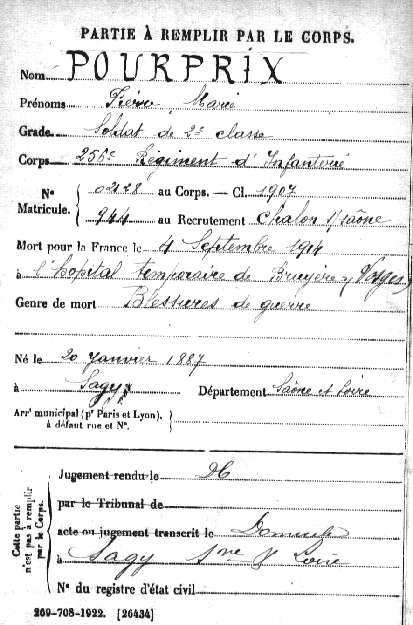 PARTIE À REMPLIR PAR LE CORPS.
Nom POURPRIX
Prénoms Pierre Marie
Grade Soldat de 2e classe
Corps 256e Régiment d'Infanterie
N° Matricule. { 02128 au Corps. — Cl. 1907
944 au Recrutement Chalon s/Saône
Mort pour la France le 4 Septembre 1914
à l'hopital temporaire de Bruyère / Vosges
Genre de mort Blessures de guerre
Né le 20 Janvier 1887
à Sagy Département Saône et Loire
Arrt municipal (pr Paris et Lyon), à défaut rue et N°. }
Cette partie n'est pas à remplir par le Corps.
Jugement rendu le
par le Tribunal de
acte ou jugement transcrit le
à Sagy Sne & Loire
N° du registre d'état civil
269-708-1922. [26434]